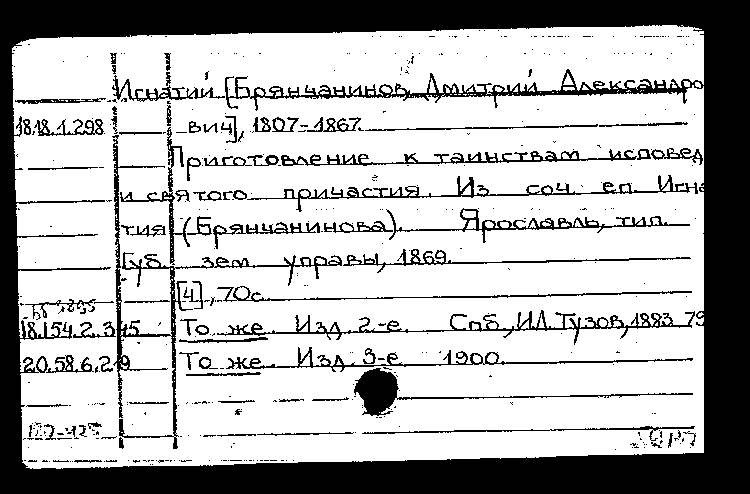 Игнатий [Брянчанинов, Дмитрий Александро
18.18.1.298 вич], 1807-1867.
Приготовление к таинствам исповед
и святого причастия. Из соч. еп. Игна
тия (Брянчанинова). Ярославль, тип.
Губ. зем. управы, 1869.
[4], 70с.
18.154.2.345 То же. Изд. 2-е. Спб., И.Л.Тузов, 1883 79
20.58.6.219 То же. Изд. 3-е. 1900.